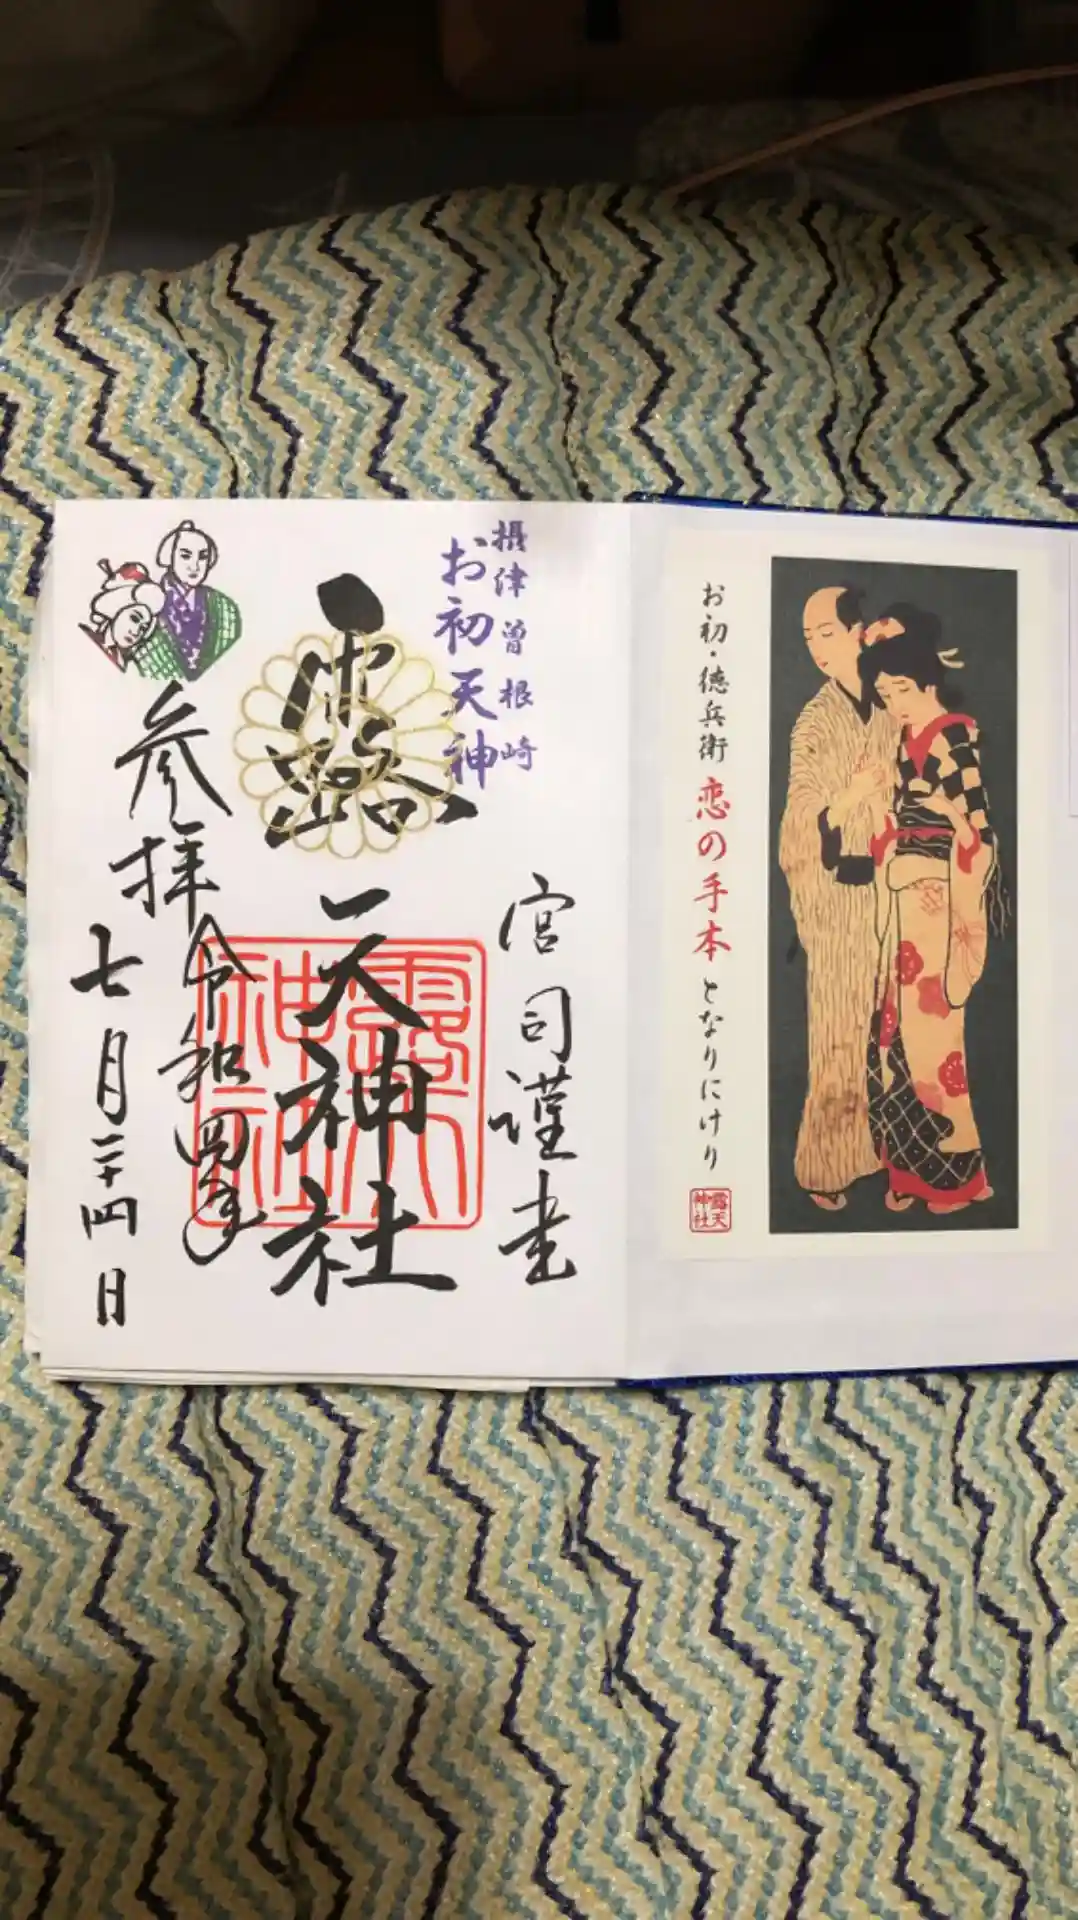 お初・徳兵衛 恋の手本となりにけり
露天神社
摂津 曽根崎
お初天神
宮司謹書
露天神社
露天神社
参拝
令和四年
七月二十四日